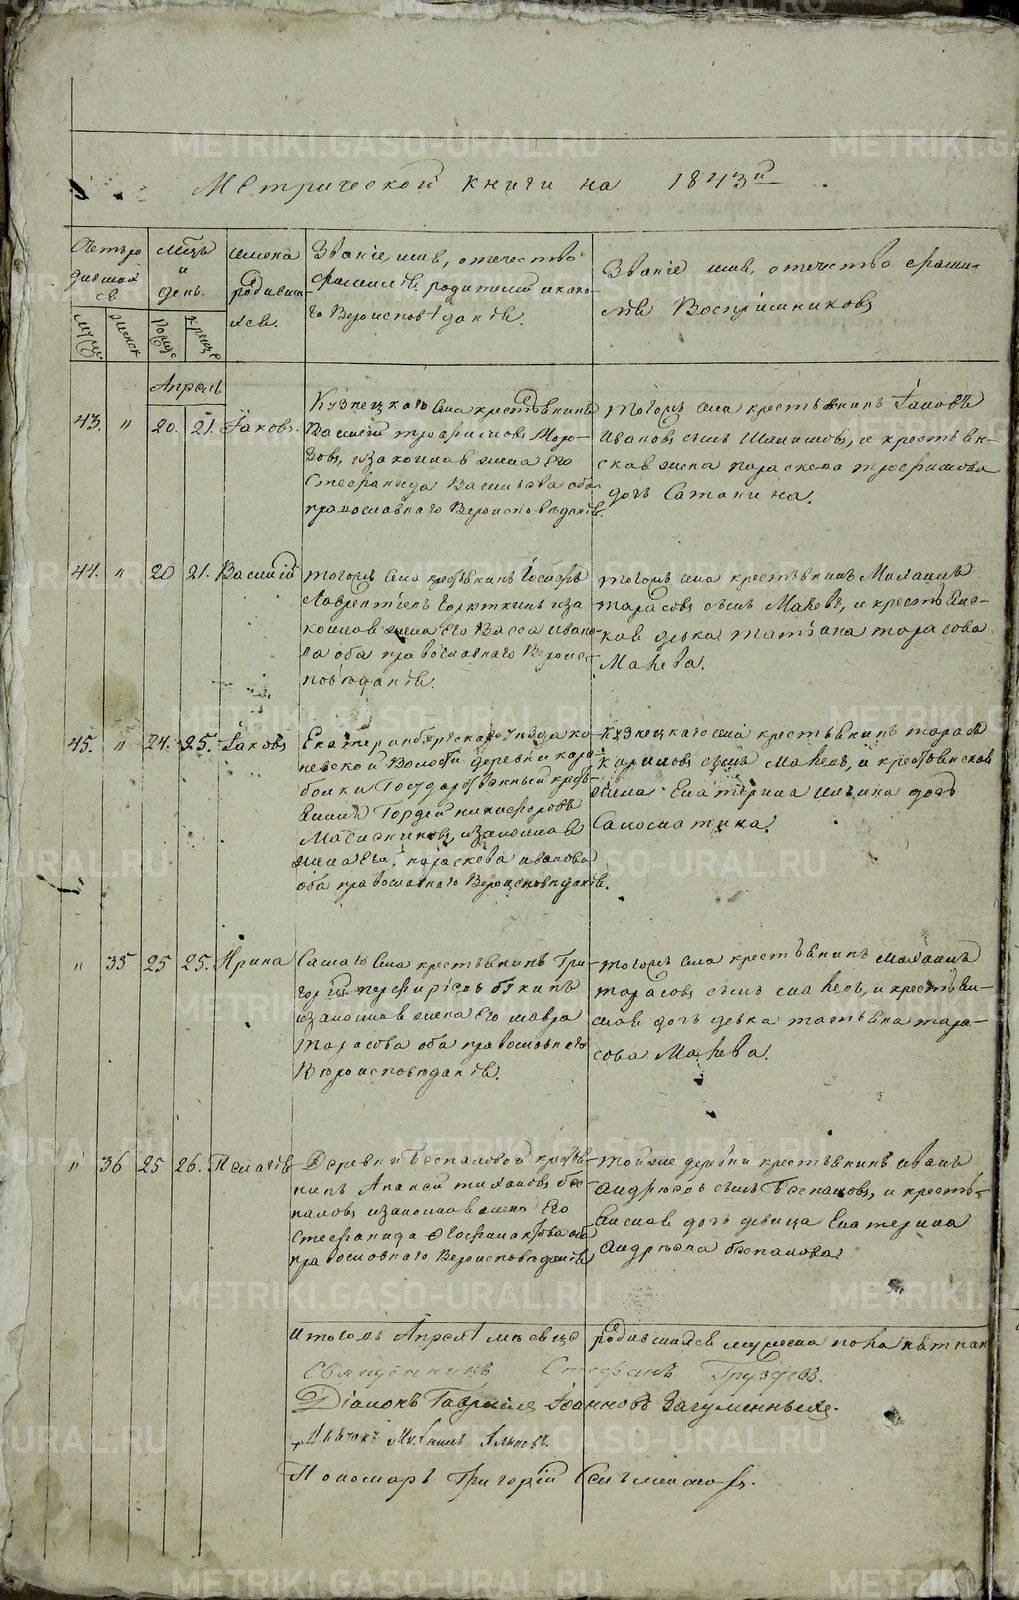 Метрической книги на 1843й
Счетъ ро
дивших
ся.
мцъ
и
день.
имена
родивши
хся.
Званіе, имя, отечество
фамилія родителей и како
го Вероисповѣданія.
Званіе имя, отечество фами-
лія Воспріемниковъ
Апрель
43. " 20. 21. Іаковъ.
Кузнецкаго села крестьянинъ
Василій трофимовъ Моро-
зовъ, изаконная жена Его
Стефанида Васильева оба
православнаго Вероисповѣданія.
тогожъ села крестьянинъ Іаковъ
ивановъ сынъ, и крестьян-
ская жена параскева трофимова
дочь Сатонина.
44. " 20 21. Василій
тогожъ села крестьянинъ Іосифъ
Лаврентіевъ иза
конная жена Его Васса ивано-
ва оба православнаго Вероис-
повѣданія.
тогожъ села крестьянинъ Михаилъ
тарасовъ сынъ, и крестьянс-
кая девка татіана тарасова
45. " 24. 25. Іаковъ
Екатеринбургскаго уезда ко
невской Волости деревни кара
болки Государственный кресть-
янинъ Гордей никифоровъ
изаконная
жена Его параскева иванова
оба православнаго Вероисповѣданія.
Кузнецкаго села крестьянинъ тарасъ
кириловъ сынъ, и крестьянская
жена Екатерина ильина дочь
" 35 25 25. Ирина
Самаго Села крестьянинъ Гри-
горій перфиріевъ
изаконная жена Его мавра
тарасова оба православнаго
Вероисповѣданія.
тогожъ села крестьянинъ михаилъ
тарасовъ сынъ, и крестьян-
ская дочь девка татьяна тара-
сова
" 36 25 26. Пелагія
Деревни Беспаловой крестья-
нинъ Алексей тихановъ бес-
паловъ изаконная жена Его
Стефанида оба
православнаго Вероисповѣданія
тойже деревни крестьянинъ иванъ
андреевъ сынъ Беспаловъ, и кресть-
янская дочь девица Екатерина
андреева беспалова
итого въ Апреле месяце родившихся мужеска пола
Священникъ Стефанъ Груздевъ.
Діаконъ Гавріилъ Іоанновъ Загуменныхъ.
Дьячокъ Михаилъ
Пономарь Григорій